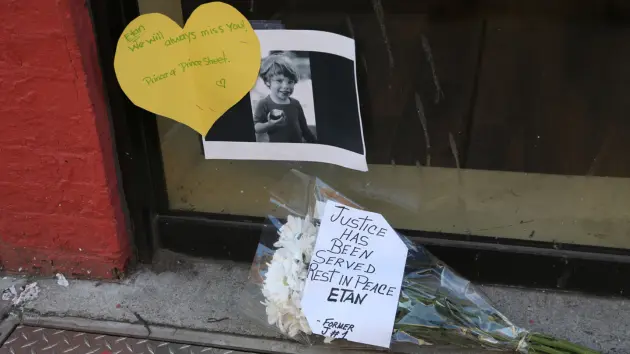 Etan
We will always miss you!
Prince of Prince Street.
JUSTICE
HAS
BEEN
SERVED
REST IN PEACE
ETAN
- FORMER